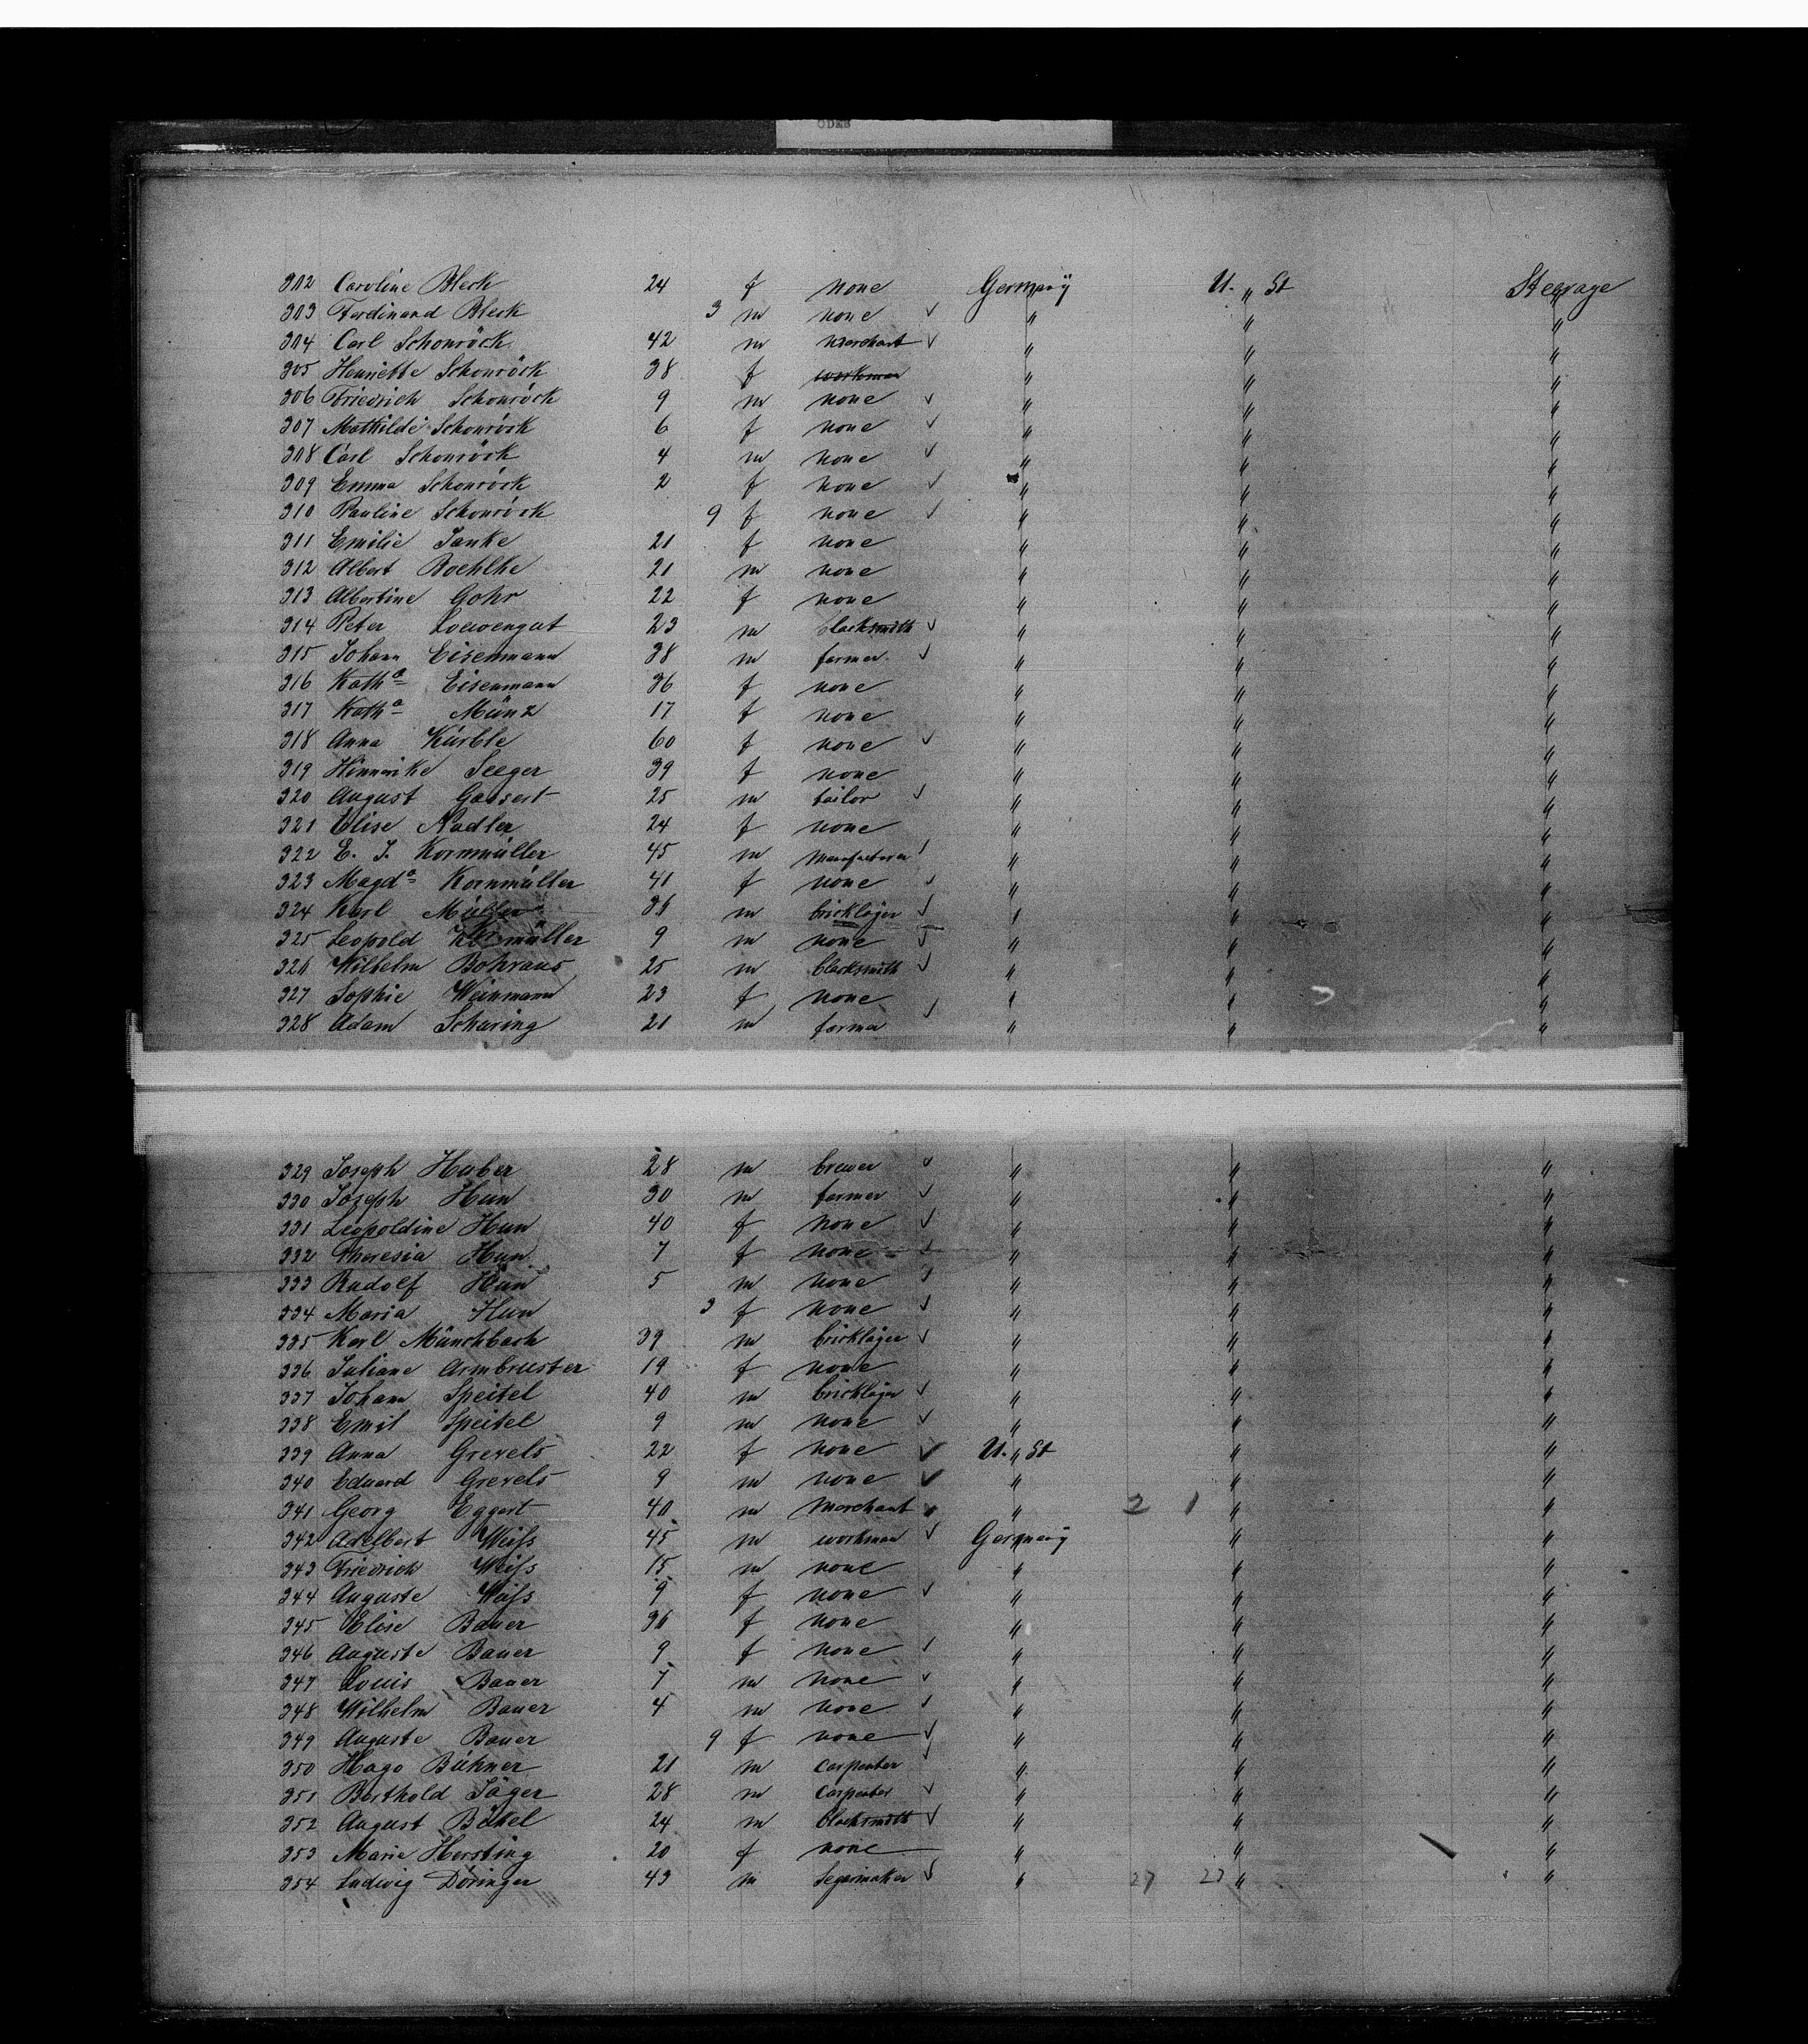 302 Caroline Bleck 24 f none Germany U. St Steerage
303 Ferdinand Bleck 3 m none ✓ " " "
304 Carl Schonröck 42 m merchant ✓ " " "
305 Henriette Schonröck 38 f workman " " "
306 Friedrich Schonröck 9 m none ✓ " " "
307 Mathilde Schonröck 6 f none ✓ " " "
308 Carl Schonröck 4 m none ✓ " " "
309 Emma Schonröck 2 f none ✓ " " "
310 Pauline Schonröck 9 f none ✓ " " "
311 Emilie Janke 21 f none " " "
312 Albert Boehlke 21 m none " " "
313 Albertine Gohr 22 f none " " "
314 Peter Loewengut 23 m blacksmith ✓ " " "
315 Johann Eisenmann 38 m farmer ✓ " " "
316 Katha Eisenmann 36 f none " " "
317 Katha Münz 17 f none " " "
318 Anna Kürble 60 f none ✓ " " "
319 Hinnrike Seeger 39 f none " " "
320 August Gassert 25 m tailor ✓ " " "
321 Elise Nadler 24 f none " " "
322 E. J. Kornmüller 45 m manufacturer ✓ " " "
323 Magda Kornmüller 41 f none ✓ " " "
324 Karl Müller m bricklayer ✓ " " "
325 Leopold Kornmüller 9 m none ✓ " " "
326 Wilhelm Bohraus 25 m blacksmith ✓ " " "
327 Sophie Weinmann 23 f none " " "
328 Adam Scharing 21 m farmer ✓ " " "
329 Joseph Huber 28 m brewer ✓ " " "
330 Joseph Hun 30 m farmer ✓ " " "
331 Leopoldine Hun 40 f none ✓ " " "
332 Theresia Hun 7 f none ✓ " " "
333 Rudolf Hun 5 m none ✓ " " "
334 Maria Hun 3 f none ✓ " " "
335 Karl Münchbach 39 m bricklayer ✓ " " "
336 Juliane Armbruster 19 f none " " "
337 Johann Speitel 40 m bricklayer ✓ " " "
338 Emil Speitel 9 m none ✓ " " "
339 Anna Grevels 22 f none ✓ U. St " "
340 Eduard Grevels 9 m none ✓ " " "
341 Georg Eggert 40 m merchant ✓ " 2 1 " "
342 Adelbert Weiss 45 m workman ✓ Germany " "
343 Friedrich Weiss 15 m none " " "
344 Auguste Weiss 9 f none ✓ " " "
345 Elise Bauer 36 f none " " "
346 Auguste Bauer 9 f none ✓ " " "
347 Louis Bauer 7 m none ✓ " " "
348 Wilhelm Bauer 4 m none ✓ " " "
349 Auguste Bauer 9 f none ✓ " " "
350 Hugo Bühner 21 m carpenter ✓ " " "
351 Berthold Jäger 28 m carpenter ✓ " " "
352 August Bökel 24 m blacksmith ✓ " " "
353 Marie Hersting 20 f none " " "
354 Ludwig Döringer 43 m Segarmaker ✓ " 27 23 " "